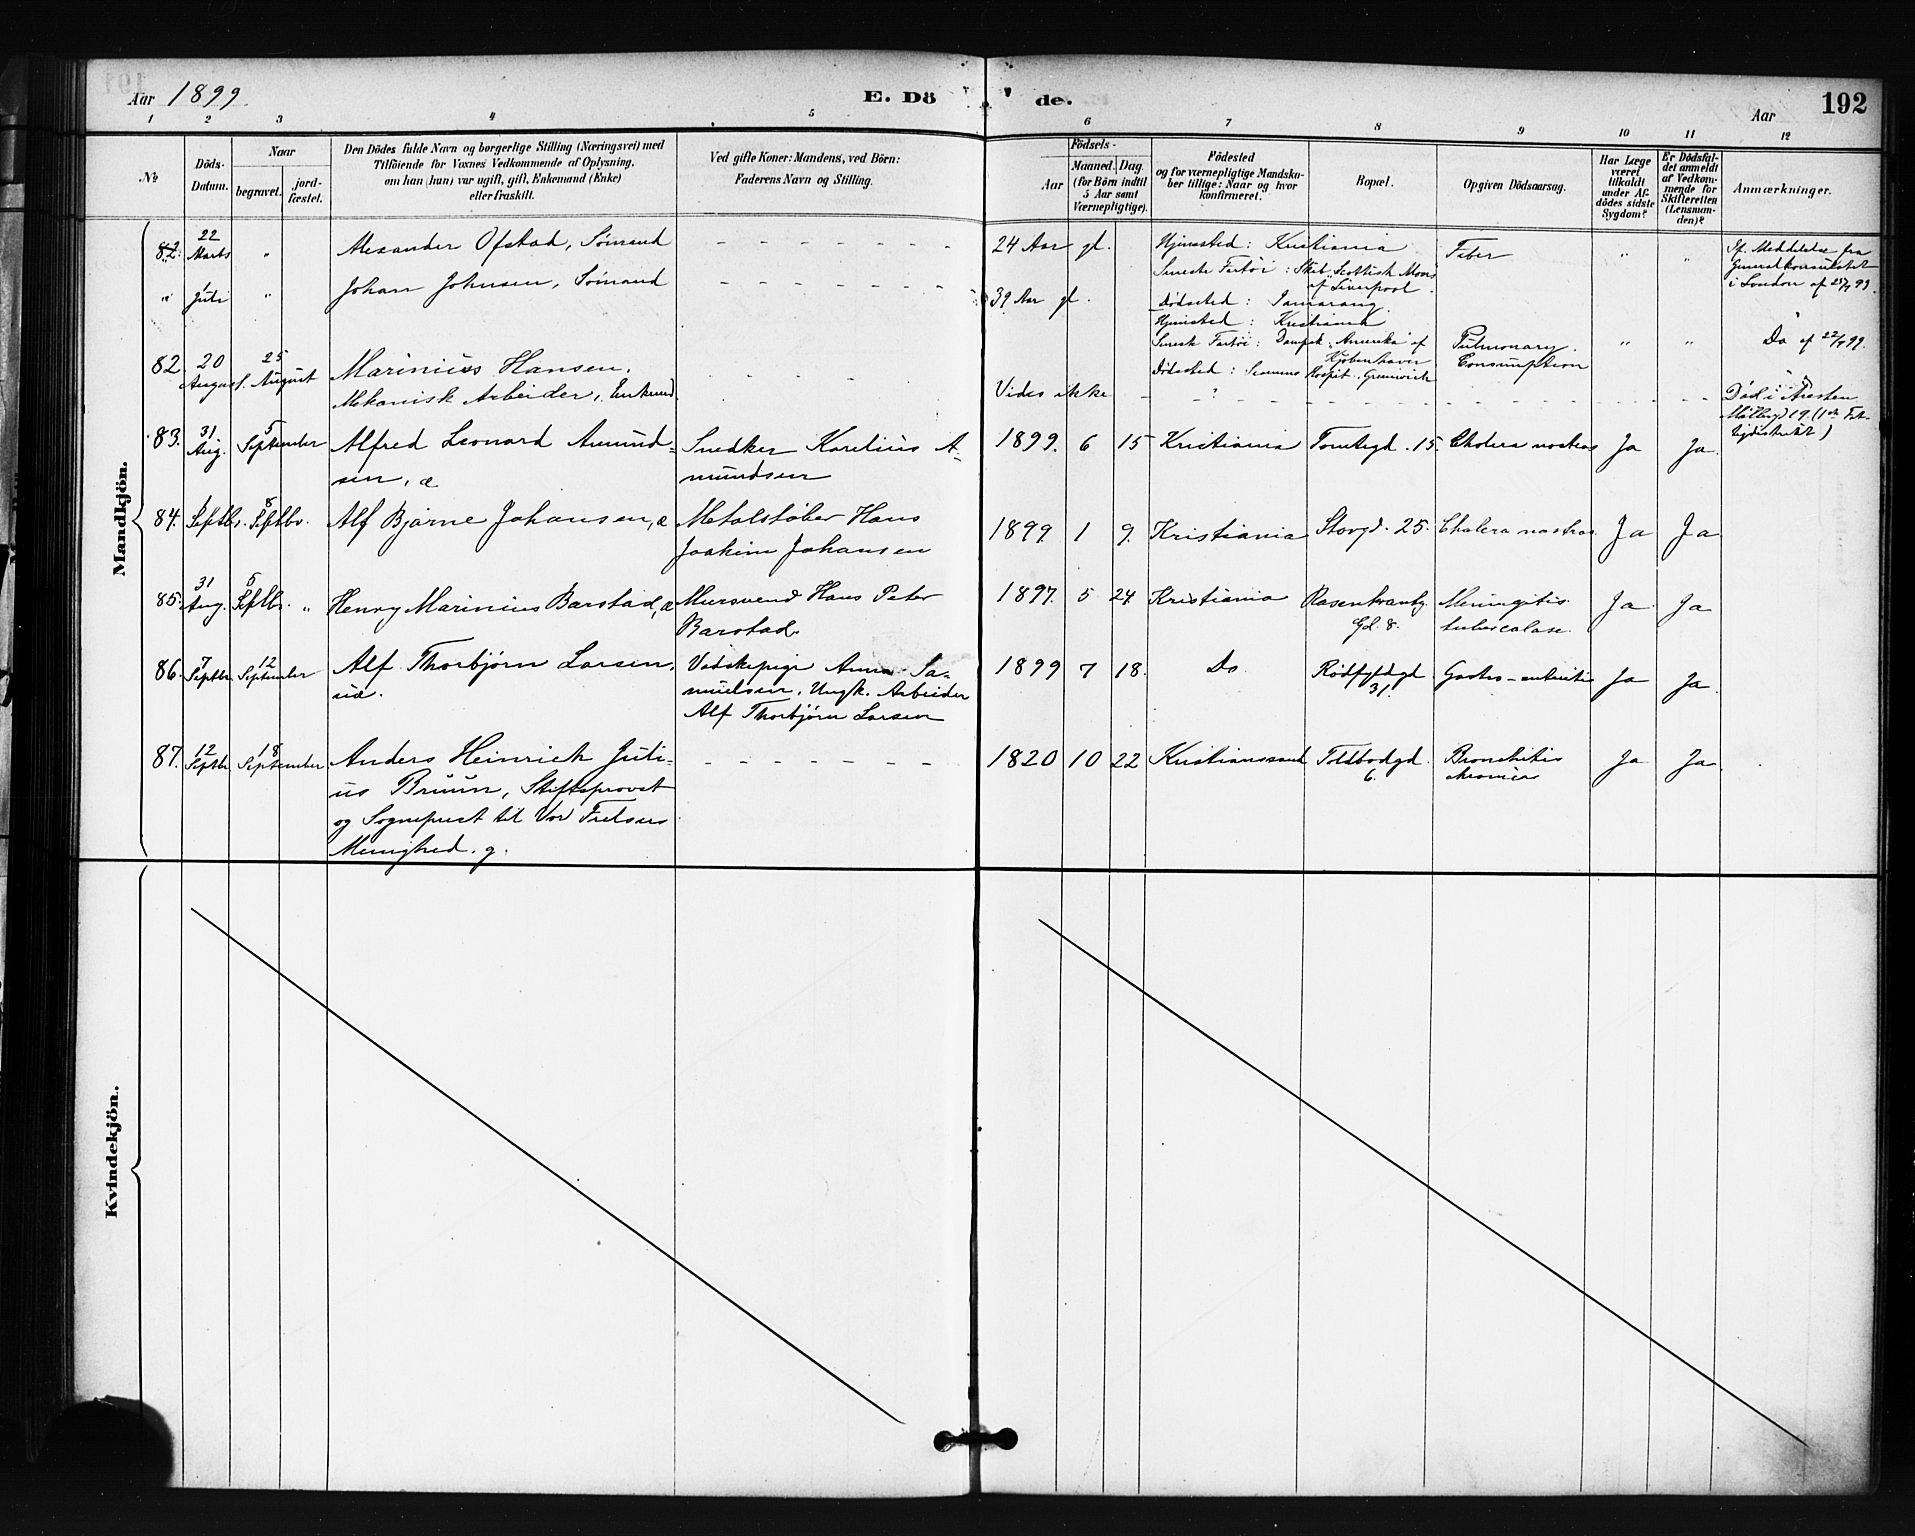 Aar 1899.
E. Dö
de.
Aar
192
1 2 3 4 5 6 7 8 9 10 11 12
№
Döds-
Datum.
Naar
begravet.
jord-
fæstet.
Den Dödes fulde Navn og borgerlige Stilling (Næringsvei) med
Tilföiende for Voxnes Vedkommende af Oplysning,
om han (hun) var ugift, gift, Enkemand (Enke)
eller fraskilt.
Ved gifte Koner: Mandens, ved Börn:
Faderens Navn og Stilling.
Födsels-
Aar
Maaned. Dag.
(for Börn indtil
5 Aar samt
Værnepligtige).
Födested
og for værnepligtige Mandska-
ber tillige: Naar og hvor
konfirmeret.
Bopæl.
Opgiven Dödsaarsag.
Har Læge
været
tilkaldt
under Af-
dödes sidste
Sygdom?
Er Dödsfal-
det anmeldt
af Vedkom-
mende for
Skifteretten
(Lensman-
den)?
Anmærkninger.
Mandkjön.
82. 22 Marts " Alexander Ofstad, Sømand - - - - - - - 24 Aar gl.
Hjemsted: Kristiania
Seneste Fartøi: Skib "Scottish Moors"
af Liverpool.
Dødssted: Samarang.
Feber " "
If. Meddelelse fra
Generalkonsulatet
i London af
" Juli " Johan Johnsen, Sømand - - - - - - - 39 Aar gl.
Hjemsted: Kristiania
Seneste Fartøi: Dampsk. "Amerika" af
Kjøbenhavn
Dødssted: Seamens Hospit. Greenwich
Pulmonary
Consumption " " Do af 22/ 99.
82. 20 August. 25 August Marinius Hansen,
Mekanisk Arbeider, Enkemd. - - - Vides ikke - - ? - - - - -
Død i Aresten
Møllergd 19.
83. 31 Aug. 5 September Alfred Leonard Amund-
sen, æ
Snedker Karelius A-
mundsen
1899. 6 15 Kristiania Tomtegd. 15. Cholera nostras Ja Ja.
84. Septbr. 8 Septbr. Alf Bjarne Johansen, æ
Metalstøber Hans
Joakim Johansen
1899. 1 9. Kristiania Storgd. 25. Cholera nostras. Ja Ja
85. 31 Aug. 5 Septbr. " Henry Marinius Barstad, æ
Mursvend Hans Peter
Barstad.
1897. 5 24. Kristiania Rosenkrantz
Gd. 8. Meningitis
tuberculose. Ja Ja
86. 7 Septbr. 12 September Alf Thorbjørn Larsen,
uæ.
Vadskepige Anna Sa-
muelsen, Ungk. Arbeider
Alf Thorbjørn Larsen
1899 7 18. Do Rødfyldgd
31. Gastro-enteritis Ja Ja.
87. 12 Septbr. 18 September Anders Heinrich Juli-
us Bruun, Stiftsprovst
og Sogneprest til Vor Frelsers
Menighed. g.
- - - - - - -
1820 10 22 Kristianssand Toldbodgd.
6. Bronchitis
chronica Ja Ja.
Kvindekjön.